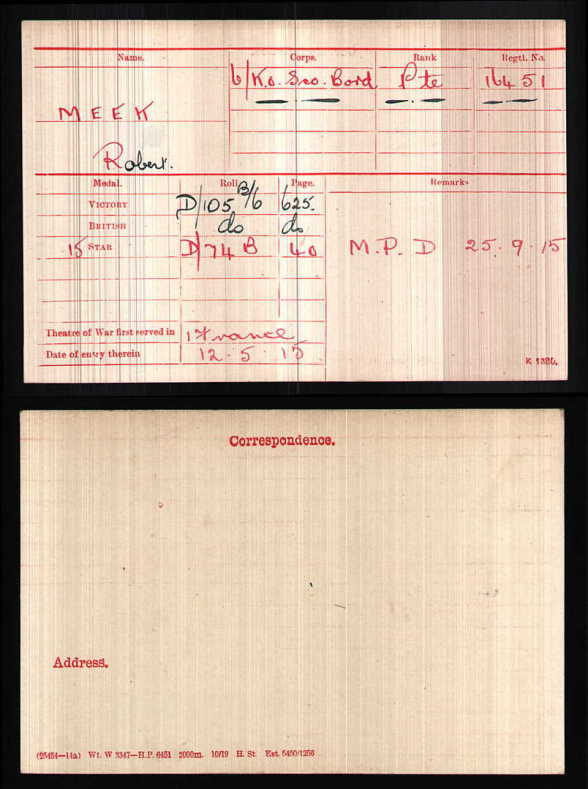 Name. Corps. Rank Regtl. No.
6/K.O. Sco. Bord Pte 16451
MEEK
Robert.
Medal. Roll. Page. Remarks
VICTORY D/105 B/6 625.
BRITISH do do
15 STAR D/74 B 40 M.P. D 25.9.15
Theatre of War first served in 1 France
Date of entry therein 12.5.15
K 1380.
Correspondence.
Address.
(25454—14a) Wt. W 3347—H.P. 6451 2000m. 10/19 H. St Est. 5400/1256